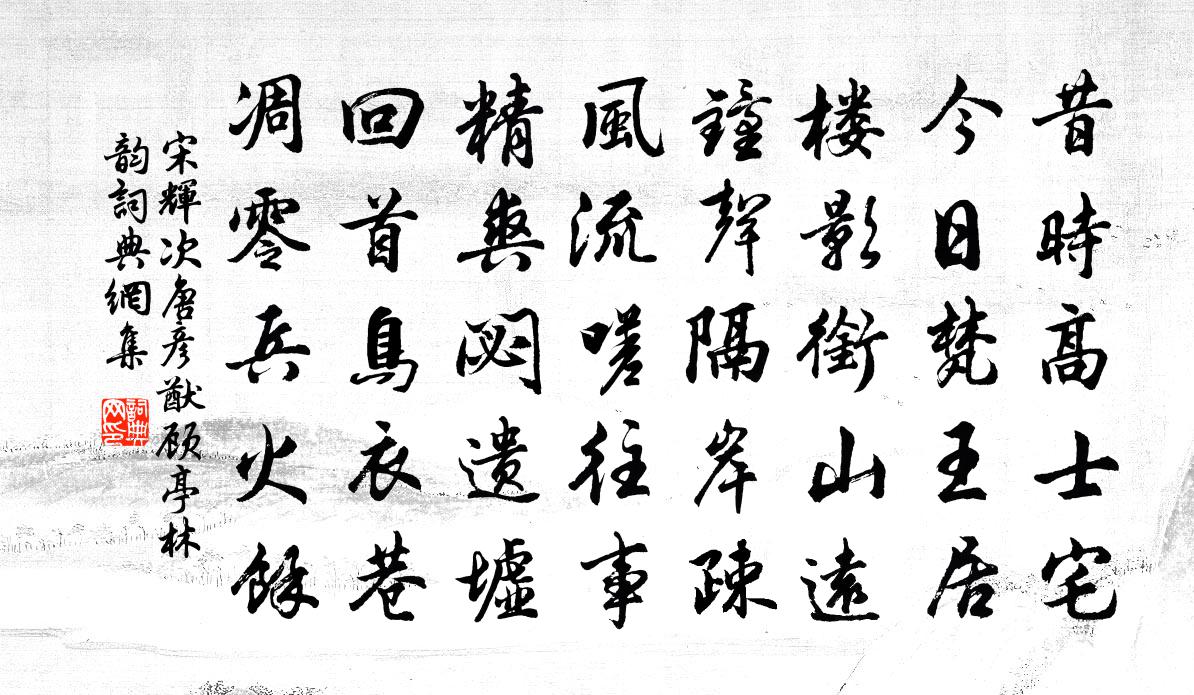 昔時高士宅
今日梵王居
楼影銜山遠
鐘聲隔岸疎
風流嗟往事
精爽閟遗墟
回首烏衣巷
凋零兵火餘
宋輝次唐彦猷顾亭林
韵詞典網集
詞典网印